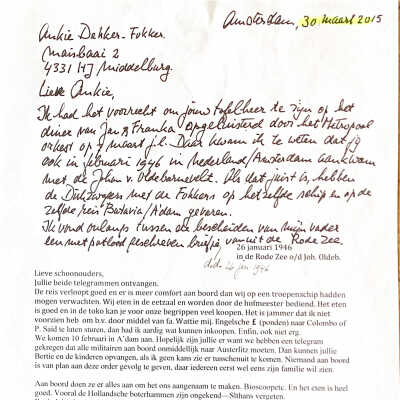 Amsterdam, 30 maart 2015
Ankie Dekker-Fokker
Maisbaai 2
4331 HJ Middelburg.
Lieve Ankie,
Ik had het voorrecht om jouw tafelheer te zijn op het
diner van Jan & Franka opgeluisterd door het Metropool
orkest op 7 maart j.l. Daar kwam ik te weten dat jij
ook in februari 1946 in Nederland/Amsterdam aankwam
met de Johan v. Oldebarnevelt. Als dat juist is, hebben
de met de Fokkers op hetzelfde schip en op de
zelfde reis Batavia/A'dam gevaren.
Ik vond onlangs tussen de bescheiden van mijn vader
een met potlood geschreven briefje, vanuit de Rode Zee.
26 januari 1946
in de Rode Zee o/d Joh. Oldeb.
d.d. 26 jan 1946
Lieve schoonouders,
Jullie beide telegrammen ontvangen.
De reis verloopt goed en er is meer comfort aan boord dan wij op een troepenschip hadden
mogen verwachten. Wij eten in de eetzaal en worden door de hofmeester bediend. Het eten
is goed en in de toko kan je voor onze begrippen veel koopen. Het is jammer dat ik niet
voorzien heb om b.v. door middel van fa. Wattie mij. Engelsche £ (ponden) naar Colombo of
P. Said te laten sturen, dan had ik aardig wat kunnen inkoopen. Enfin, ook niet erg.
We komen 10 februari in A'dam aan. Hopelijk zijn jullie er want we hebben een telegram
gekregen dat alle militairen aan boord onmiddellijk naar Austerlitz moeten. Dan kunnen jullie
Bertie en de kinderen opvangen, als ik geen kans zie er tusschenuit te komen. Niemand aan boord
is van plan aan deze order gevolg te geven, daar iedereen eerst wel eens zijn familie wil zien.
Aan boord doen ze er alles aan om het ons aangenaam te maken. Bioscoopetc. En het eten is heel
goed. Vooral de Hollandsche boterhammen zijn ongekend—Slthans vergeten.